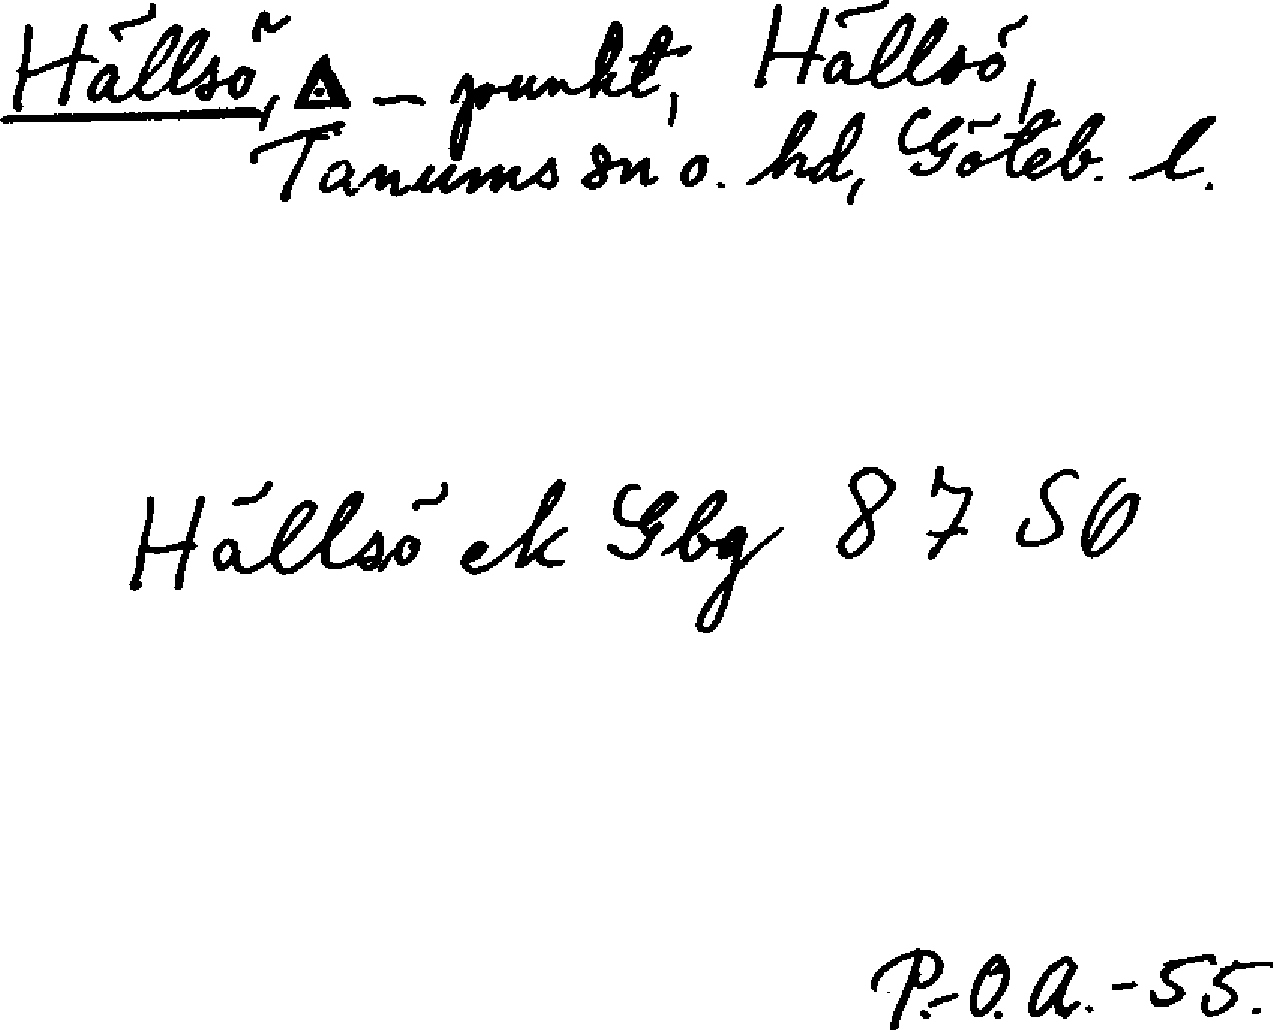 Hällsö, △ – punkt, Hällsö,
Tanums sn o. hd, Göteb. l.
Hällsö ek Gbg 8 7 50
P.-O.A.-55.